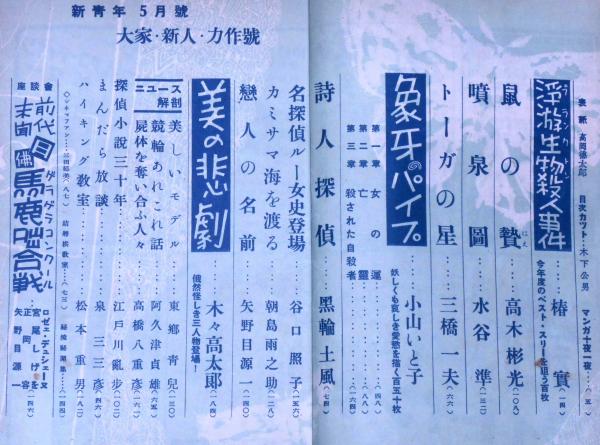 新青年 5月號
大家・新人・力作號
表紙 高岡德太郎
目次カット・木下公男
マンガ十夜一夜
浮游生物殺人事件 プランクトン
椿 實
今年度のベスト・スリーを狙う百枚
鼠の贄 にえ
高木彬光
噴泉圖
水谷準
トーガの星
三橋一夫
象牙のパイプ
第一章 女の運
第二章 亡靈
第三章 殺された自殺者
小山いと子
妖しくも哀しき愛慾を描く百五十枚
詩人探偵
黑輪土風 (七四)
名探偵ルー女史登場
谷口照子
カミサマ海を渡る
朝島雨之助
戀人の名前
矢野目源一
美の悲劇
木々高太郞
俄然怪しき三人物登場!
ニュース解剖
美しいモデル
東鄕青兒
競輪あれこれ話
阿久津貞雄
屍体を奪い合ふ人々
高橋八重彦
探偵小説三十年
江戸川亂步
まんだら放談
泉三三彦
ハイキング教室
松本重男
座談會
前代未聞
馬鹿咄合戰
ゲラゲラコンクール
ロゼェ・デュシェーヌ
宮尾しげを
正岡容
矢野目源一